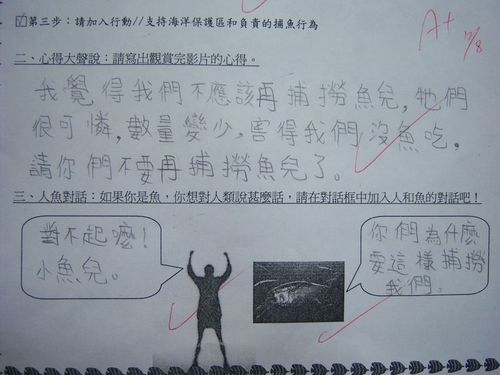 ☑第三步：請加入行動//支持海洋保護區和負責的捕魚行為
A+
12/8
二、心得大聲說：請寫出觀賞完影片的心得。
我覺得我們不應該再捕撈魚兒，牠們
很可憐，數量變少，害得我們沒魚吃，
請你們不要再捕撈魚兒了。
三、人魚對話：如果你是魚，你想對人類說甚麼話，請在對話框中加入人和魚的對話吧！
對不起嚒！
小魚兒。
你們為什麼
要這樣捕撈
我們。